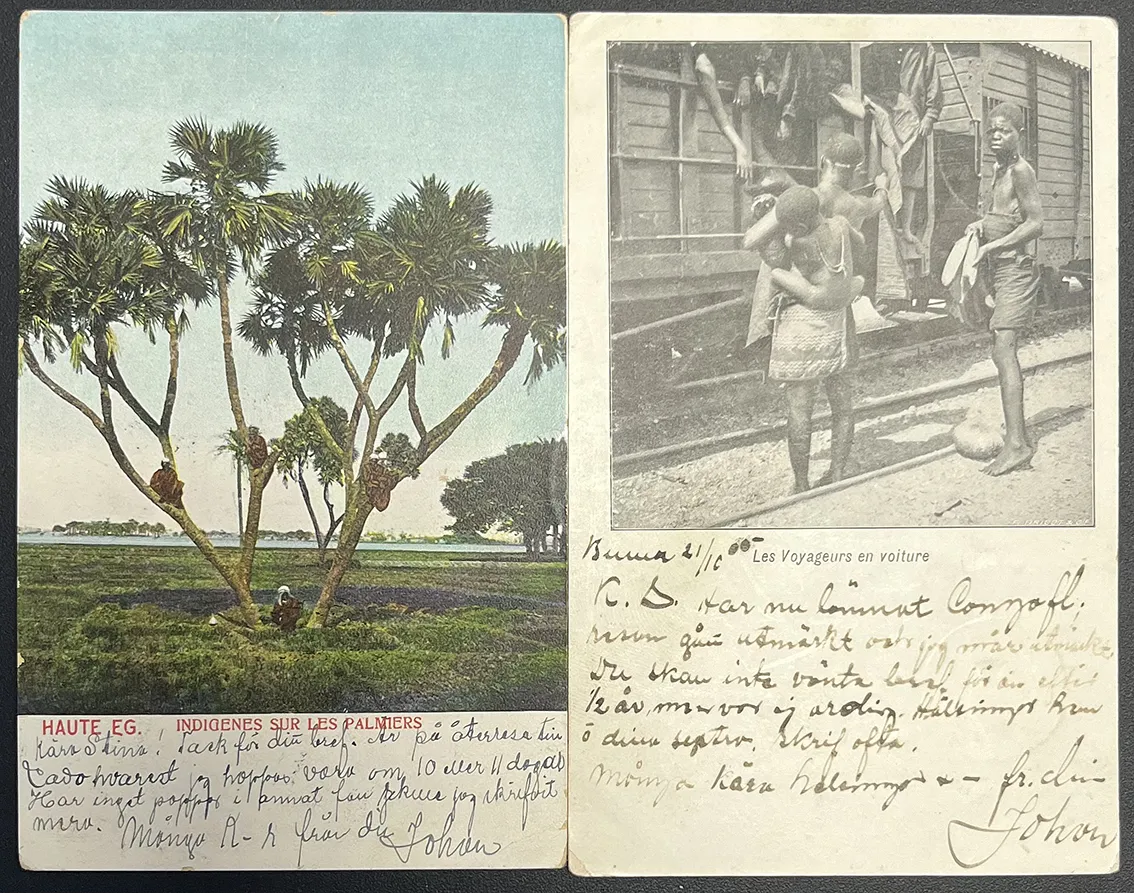 HAUTE EG. INDIGENES SUR LES PALMIERS
Kära Stina! Tack för ditt bref. Är på återresa till
Lado hvarest jag hoppas vara om 10 eller 11 dagar
Har inget papper i annat fall skulle jag skrifvit
mera.
Många K-r från din Johan
Les Voyageurs en voiture
21/10 05
K. D. Har nu lämnat Congofl.
resan gått utmärkt och jag mår utmärkt.
Du skall inte vänta bref för än efter
1/2 år, men var ej orolig. Hälsningar hem
o dina. Skrif ofta.
Många kära hälsningar fr. din
Johan